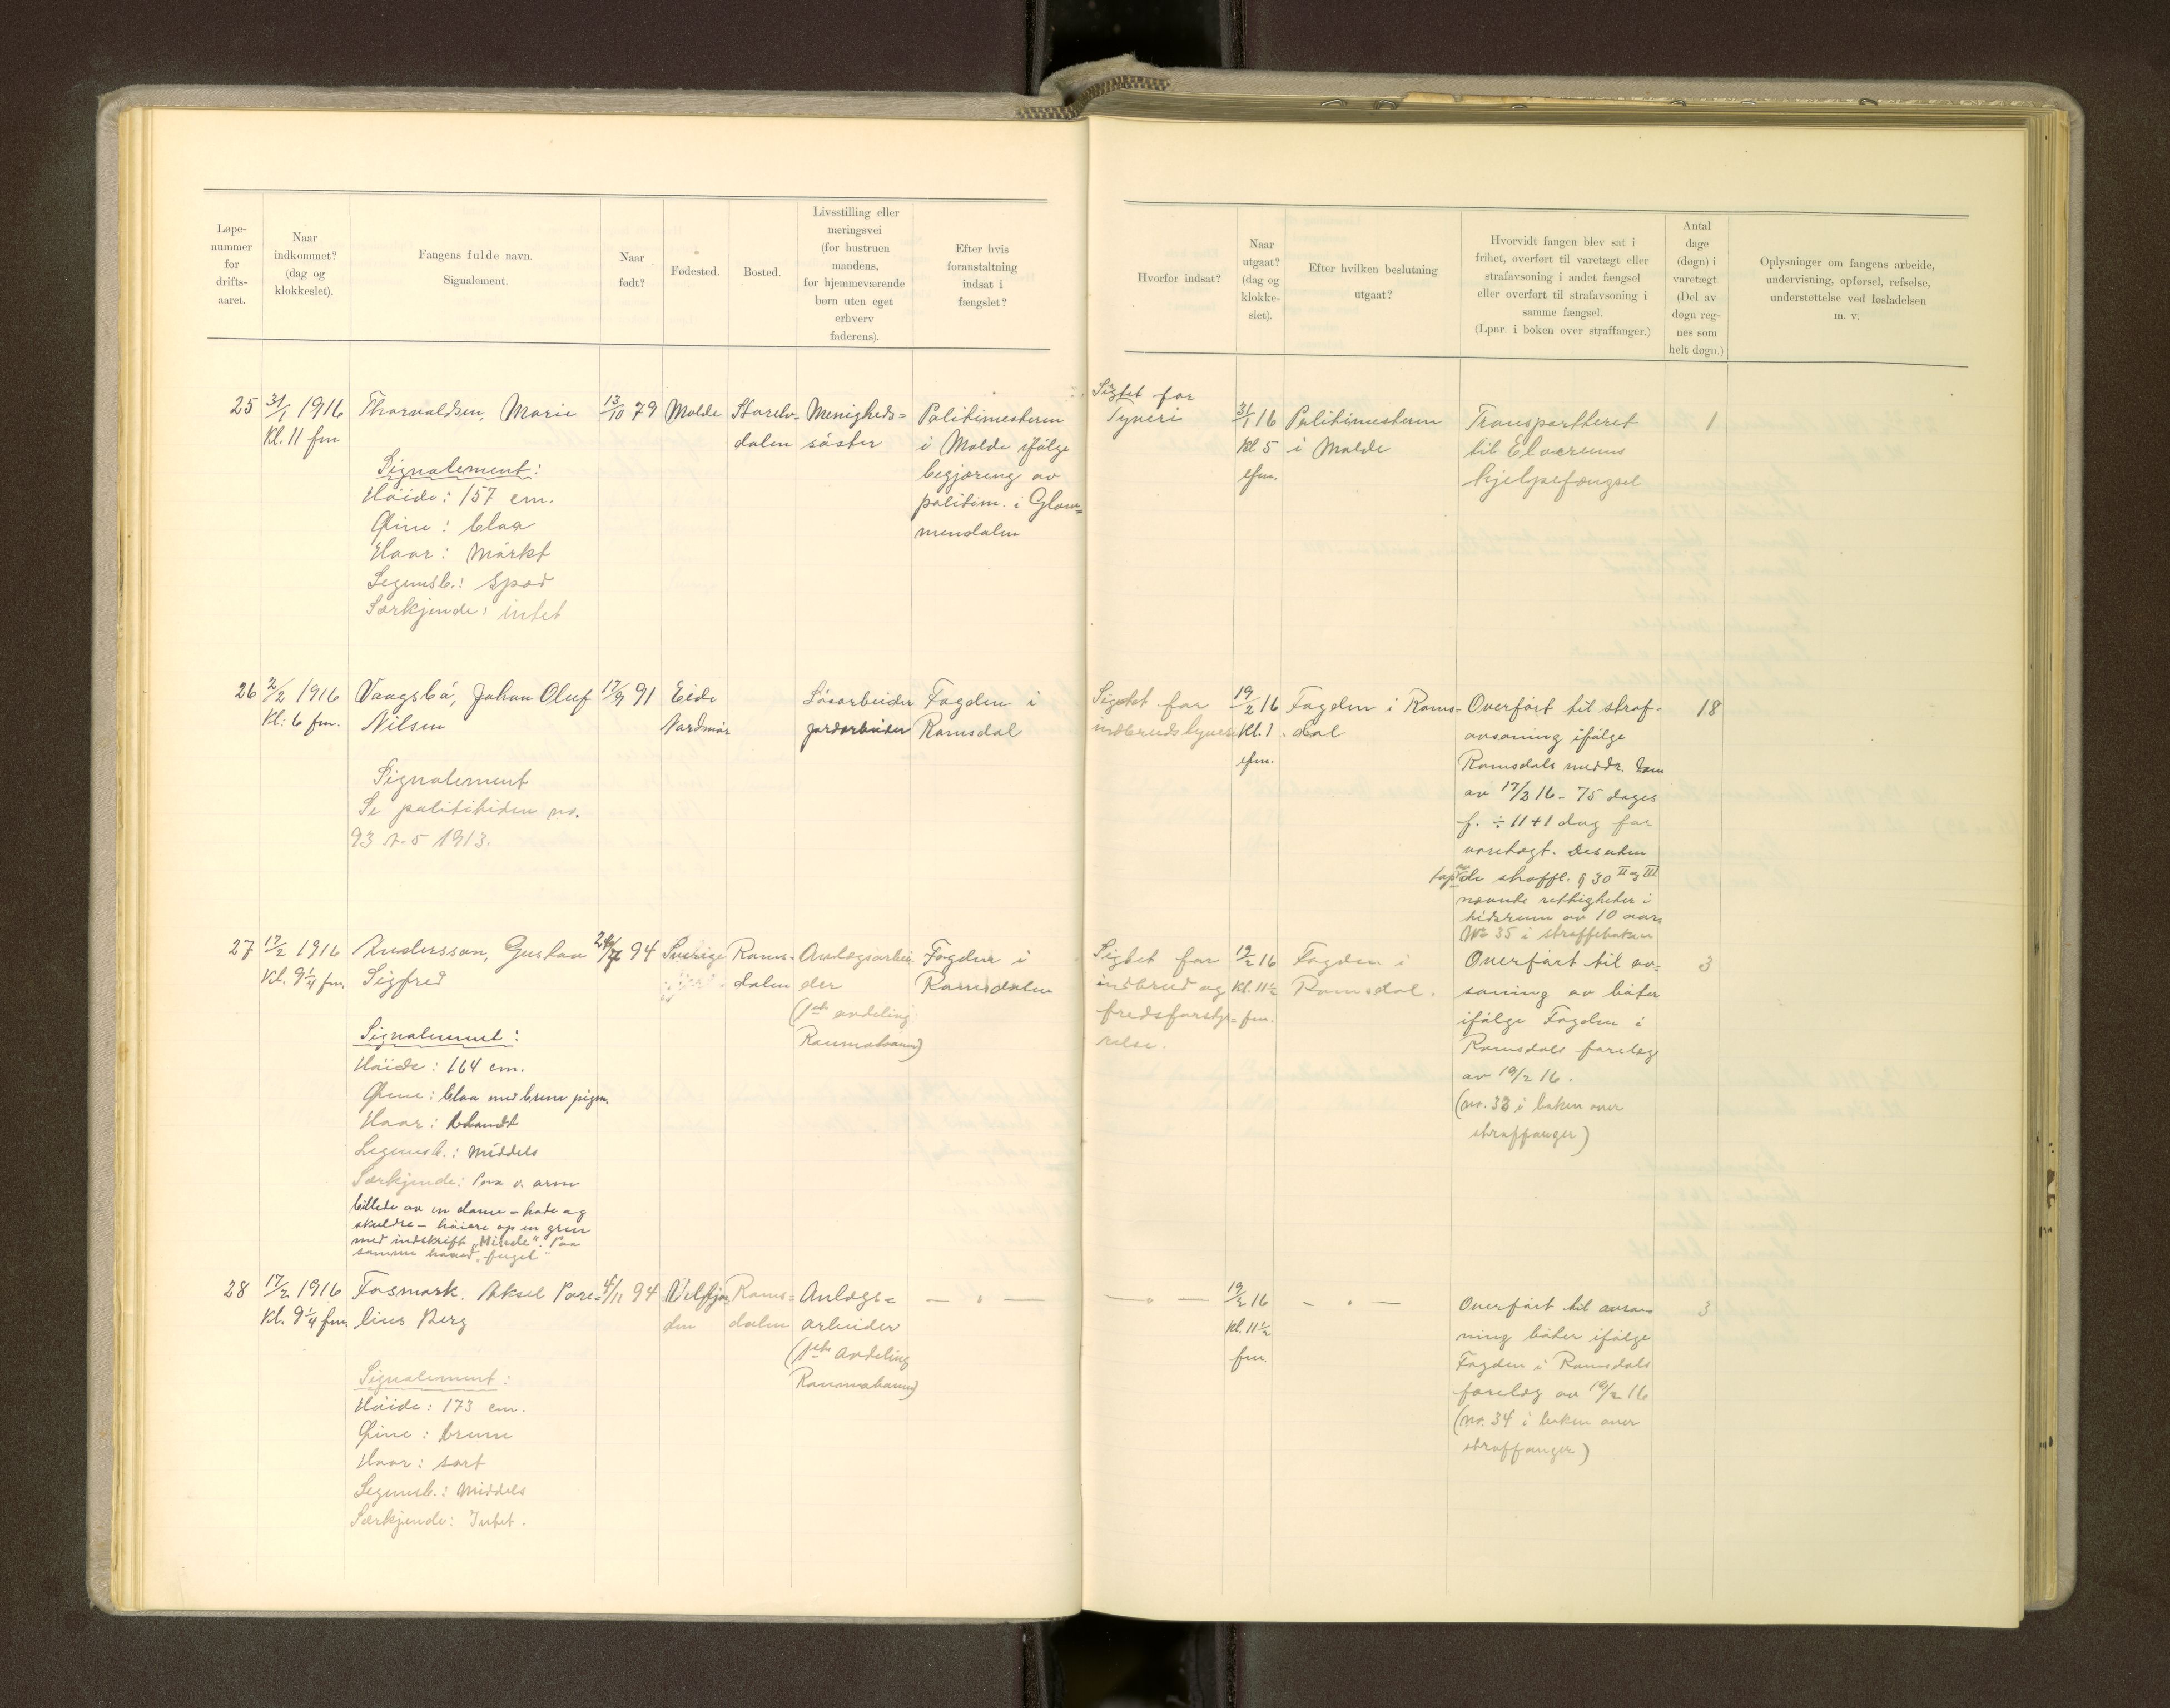 Løpe-
nummer
for
drifts-
aaret.
Naar
indkommet?
(dag og
klokkeslet).
Fangens fulde navn.
Signalement.
Naar
født?
Fødested.
Bosted.
Livsstilling eller
næringsvei
(for hustruen
mandens,
for hjemmeværende
børn uten eget
erhverv
faderens).
Efter hvis
foranstaltning
indsat i
fængslet?
Hvorfor indsat?
Naar
utgaat?
(dag og
klokke-
slet).
Efter hvilken beslutning
utgaat?
Hvorvidt fangen blev sat i
frihet, overført til varetægt eller
strafavsoning i andet fængsel
eller overført til strafavsoning i
samme fængsel.
(Lpnr. i boken over straffanger.)
Antal
dage
(døgn) i
varetægt
(Del av
døgn reg-
nes som
helt døgn.)
Oplysninger om fangens arbeide,
undervisning, opførsel, refselse,
understøttelse ved løsladelsen
m. v.
25
31/1 1916
Kl. 11 fm
Thorvaldsen, Marie
Signalement:
Høide: 157 cm.
Øine: blaa
Haar: Mørkt
Legemsb.: Spæd
Særkjende: intet
13/10 79
Molde
Storelv-
dalen
Menigheds=
søster
Politimesteren
i Molde ifølge
begjæring av
politim. i Glom=
mendalen
Sigtet for
Tyveri
31/1 16
Kl 5
efm.
Politimesteren
i Molde
Transportheret
til Elverums
hjelpefængsel
1
26
2/2 1916
Kl: 6 fm.
Vaagsbø, Johan Oluf
Nilsen
Signalement
Se polititiden no.
93 1913.
17/9 91
Eide
Nordmør
Løsarbeider
jordarbeider
Fogden i
Romsdal
Sigtet for
indbrudstyveri
19/2 16
Kl. 1
efm.
Fogden i Roms=
dal
Overført til straf-
avsoning ifølge
Romsdals meddr. dom
av 17/2 16 - 75 dages
f. ÷ 11 + 1 dag for
varetægt. Desuden
tap av de i straffl. § 30 II og III
nævnte rettigheder i
tidsrum av 10 aar.
No 35 i straffeboken
18
27
17/2 1916
Kl. 9 1/4 fm.
Andersson, Gustav
Sigfred
Signalement:
Høide: 164 cm.
Øine: blaa med brune pigm.
Haar: blondt
Legemsb.: Middels
Særkjende: Paa v. arm
billede av en dame - hode og
skuldre - høiere op en gren
med indskrift „Minde". Paa
samme haand „fugel"
24/7 94
Sverige
Roms-
dalen
Anlægsarbei-
der
(1ste avdeling
Raumabanen)
Fogden i
Romsdalen
Sigtet for
indbrud og
fredsforstyr=
relse.
19/2 16
Kl. 11 1/2
fm.
Fogden i
Romsdal.
Overført til av=
soning av bøter
ifølge Fogden i
Romsdals forelæg
av 19/2 16.
(no. 33 i boken over
straffanger)
3
28
17/2 1916
Kl. 9 1/4 fm.
Fosmark. Aksel Pore=
lius Berg
Signalement:
Høide: 173 cm.
Øine: brune
Haar: sort
Legemsb.: Middels
Særkjende: Intet.
4/11 94
Velfjor
den
Roms=
dalen
Anlægs=
arbeider
(1ste avdeling
Raumabanen)
— „ —
— „ —
19/2 16
Kl. 11 1/2
fm.
- „ —
Overført til avso=
ning bøter ifølge
Fogden i Romsdals
forelæg av 19/2 16
(no. 34 i boken over
straffanger)
3